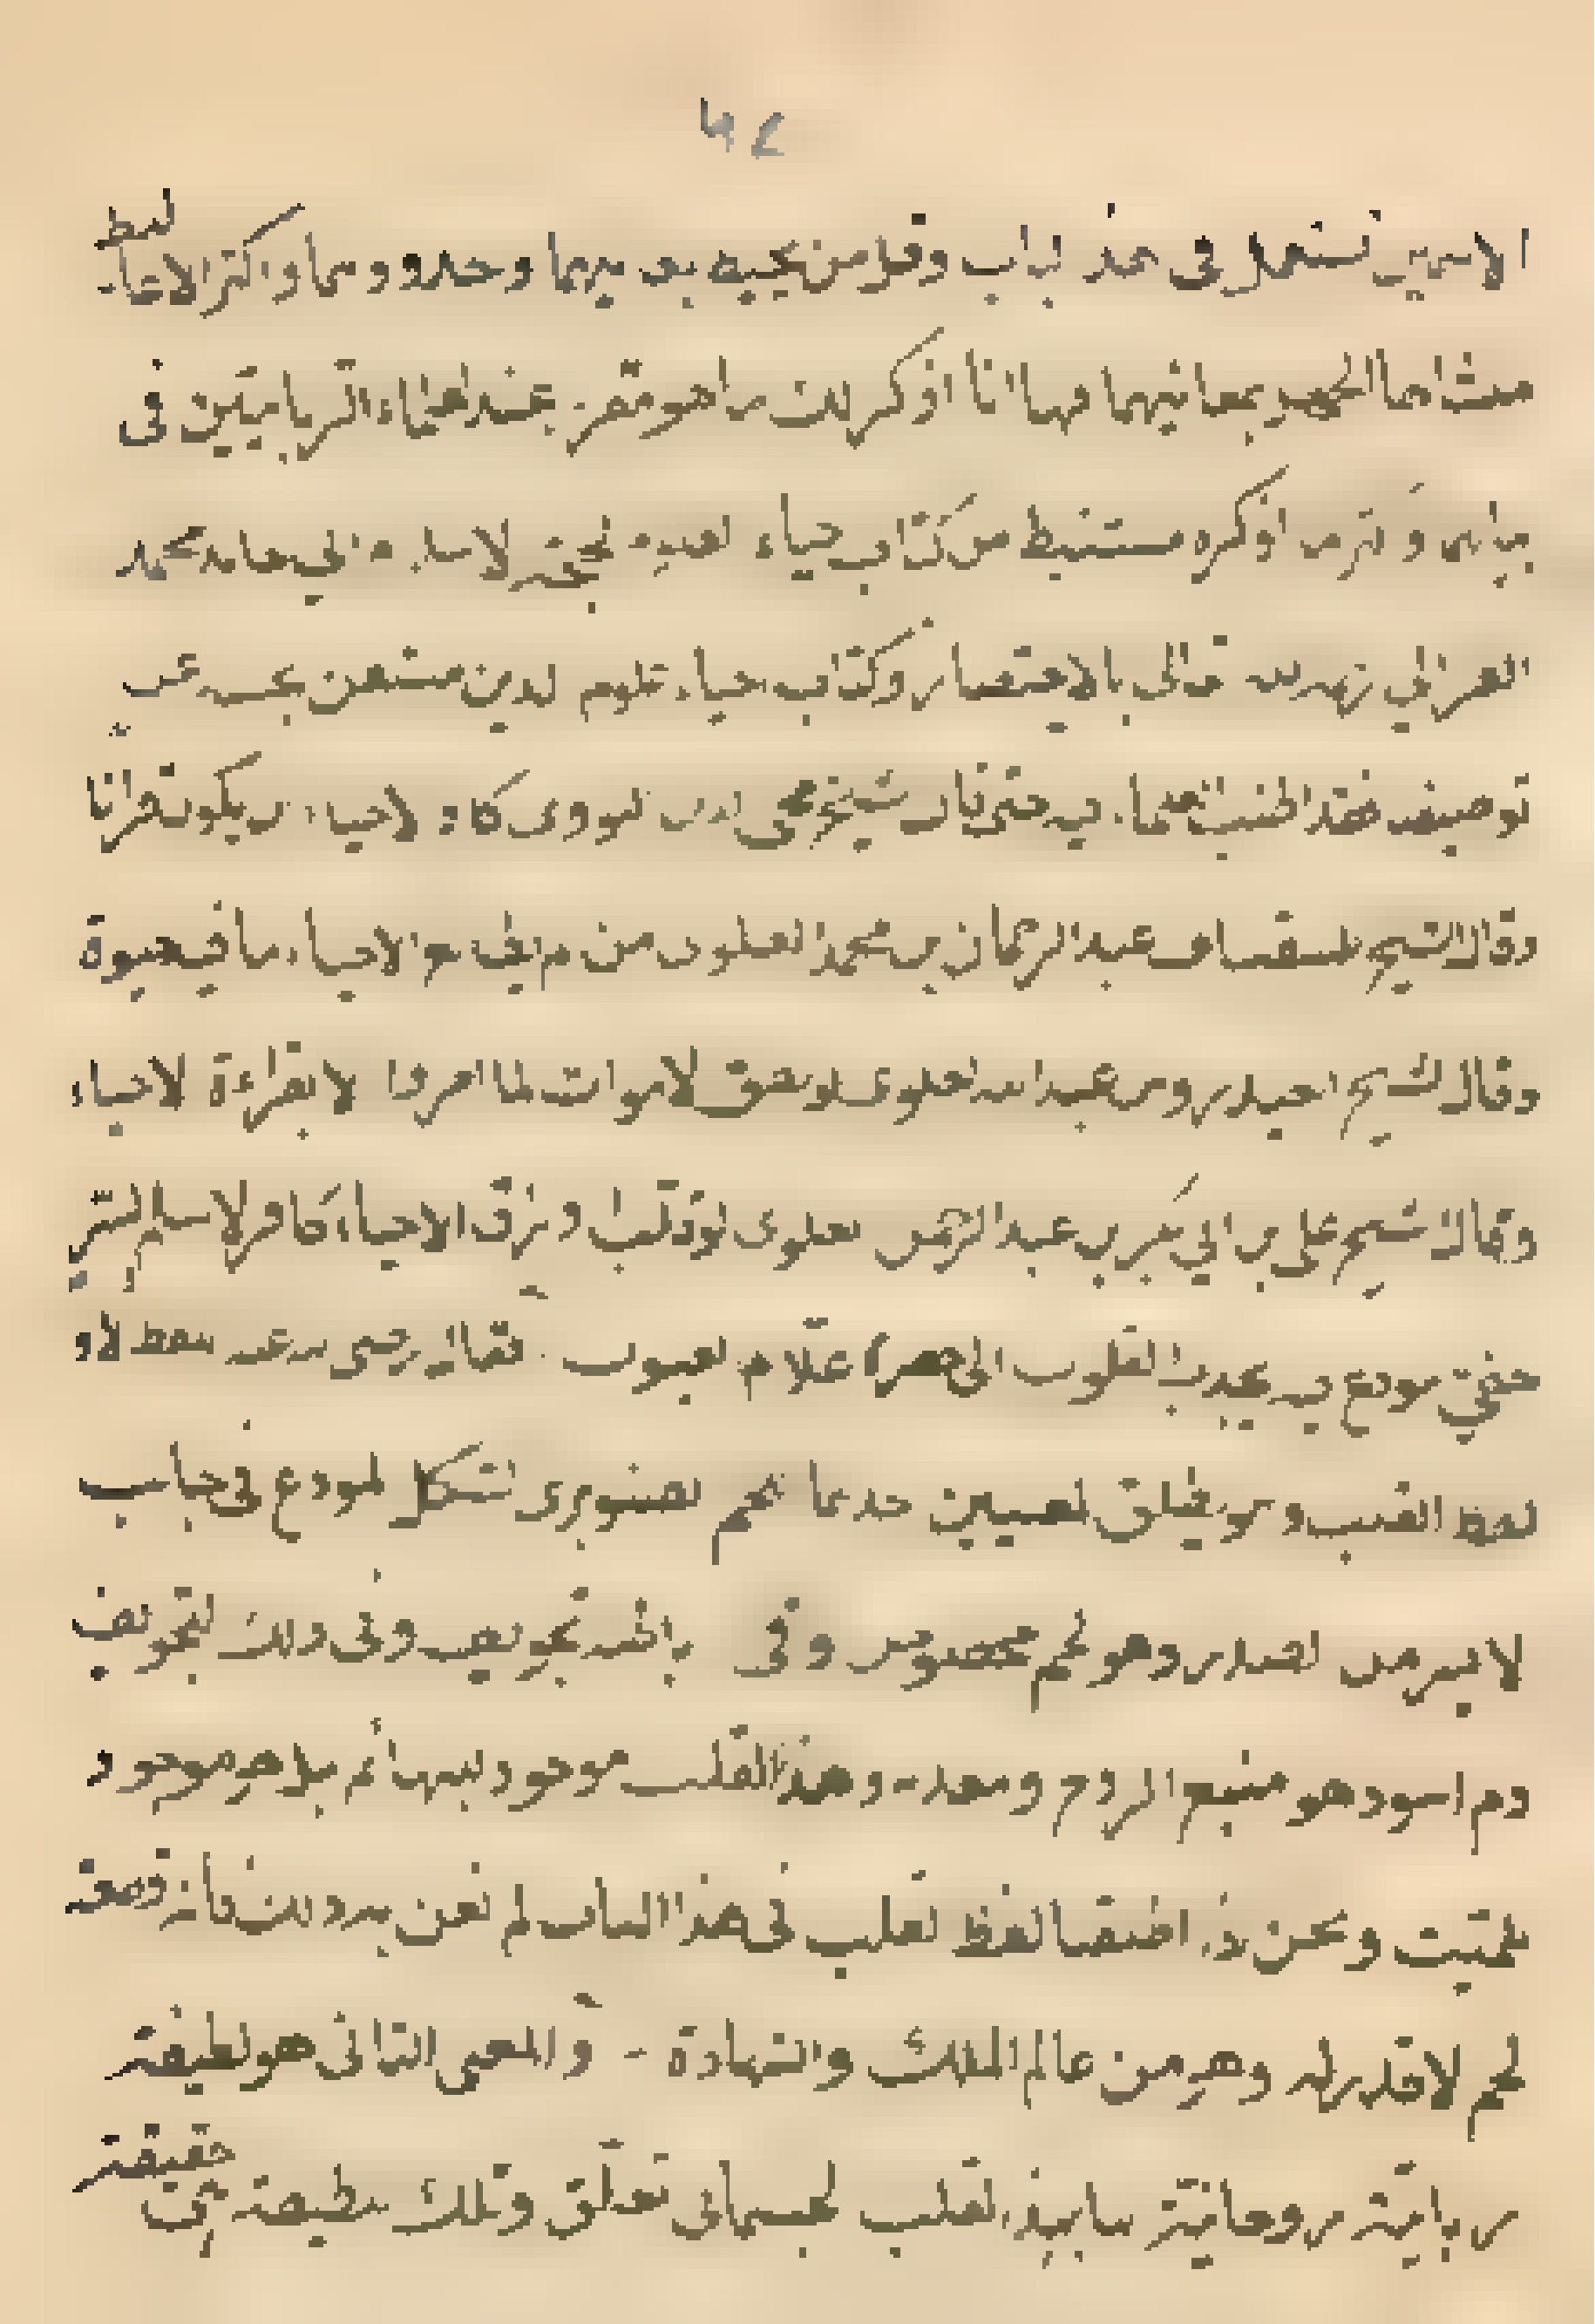 الاسمين تستعمل في هذا الباب وقل من يحيط بمعانيهما وحدودهما واكثر الاغاليط
منشاها الجهل بمعانيهما فها انا اذكر لك ما هو مقرر عند العلماء الربانيين في
بيانهما وترى ما اذكره مستنبط من كتاب احياء العلوم لحجة الاسلام ابي حامد محمد
الغزالي رحمه الله تعالى بالاختصار وكتاب احياء علوم الدين مستغن بحسنه عن
توصيف فقد اطنب العلماء فيه حتى قال الشيخ محي الدين النووي كاد الاحياء ان يكون قرانا
وقال الشيخ السقاف عبد الرحمان بن محمد العلوي من لم يطالع الاحياء ما فيه حيوة
وقال الشيخ العيدروس عبد الله العلوي لو نطق الاموات لما امروا الا بقراءة الاحياء
وقال الشيخ علي بن ابي بكر بن عبد الرحمن العلوي لو قلب اوراق الاحياء كافر لاسلم لسر
خفي مودع فيه يجذب القلوب الى حضرة علام الغيوب فقال رضي الله عنه اللفظ الاول
لفظ القلب وهو يطلق لمعنيين احدهما اللحم الصنوبري الشكل المودع في جانب
الايسر من الصدر وهو لحم مخصوص وفي باطنه تجويف وفي ذلك التجويف
دم اسود هو منبع الروح ومعدنه وهذا القلب موجود للبهائم بل هو موجود
للميت ونحن اذا اطلقنا لفظ القلب في هذا الباب لم نعن به ذلك فانه قطعة
لحم لا قدر له وهو من عالم الملك والشهادة والمعنى الثاني هو لطيفة
ربانية روحانية لها بهذا القلب الجسماني تعلق وتلك اللطيفة هي حقيقة